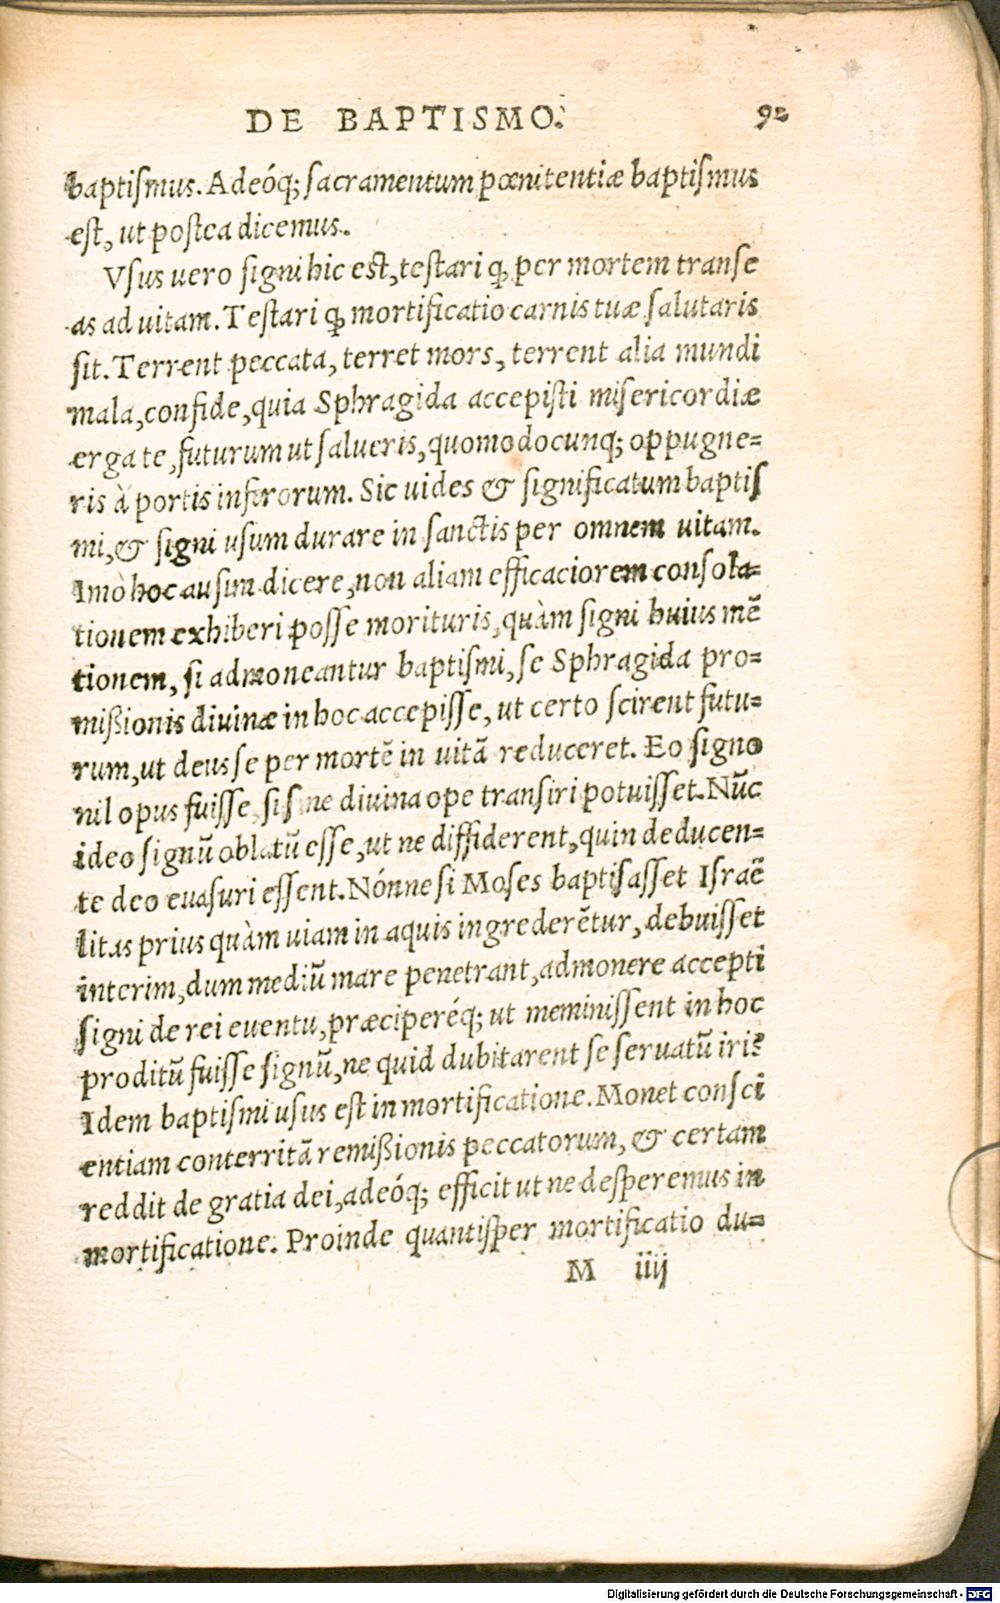 DE BAPTISMO. 92
baptiſmus. Adeóq; ſacramentum pœnitentiæ baptiſmus
eſt, ut poſtea dicemus.
Vſus uero ſigni hic eſt, teſtari ꝙ per mortem tranſe
as ad uitam. Teſtari ꝙ mortificatio carnis tuæ ſalutaris
ſit. Terrent peccata, terret mors, terrent alia mundi
mala, confide, quia Sphragida accepiſti miſericordiæ
erga te, futurum ut ſalueris, quomodocunq; oppugne=
ris à portis inferorum. Sic uides & ſignificatum baptiſ
mi, & ſigni uſum durare in ſanctis per omnem uitam.
Imò hoc auſim dicere, non aliam efficaciorem conſola=
tionem exhiberi poſſe morituris, quàm ſigni huius mē
tionem, ſi admoneantur baptiſmi, ſe Sphragida pro=
mißionis diuinæ in hoc accepiſſe, ut certo ſcirent futu=
rum, ut deus ſe per mortē in uitā reduceret. Eo ſigno
nil opus fuiſſe, ſi ſine diuina ope tranſiri potuiſſet. Nūc
ideo ſignū oblatū eſſe, ut ne diffiderent, quin deducen=
te deo euaſuri eſſent. Nónne ſi Moſes baptiſaſſet Iſraē
litas prius quàm uiam in aquis ingrederētur, debuiſſet
interim, dum mediū mare penetrant, admonere accepti
ſigni de rei euentu, præciperéq; ut meminiſſent in hoc
proditū fuiſſe ſignū, ne quid dubitarent ſe ſeruatū iri?
Idem baptiſmi uſus eſt in mortificatione. Monet conſci
entiam conterritā remißionis peccatorum, & certam
reddit de gratia dei, adeóq; efficit ut ne deſperemus in
mortificatione. Proinde quantiſper mortificatio du=
M iiij
Digitalisierung gefördert durch die Deutsche Forschungsgemeinschaft - DFG